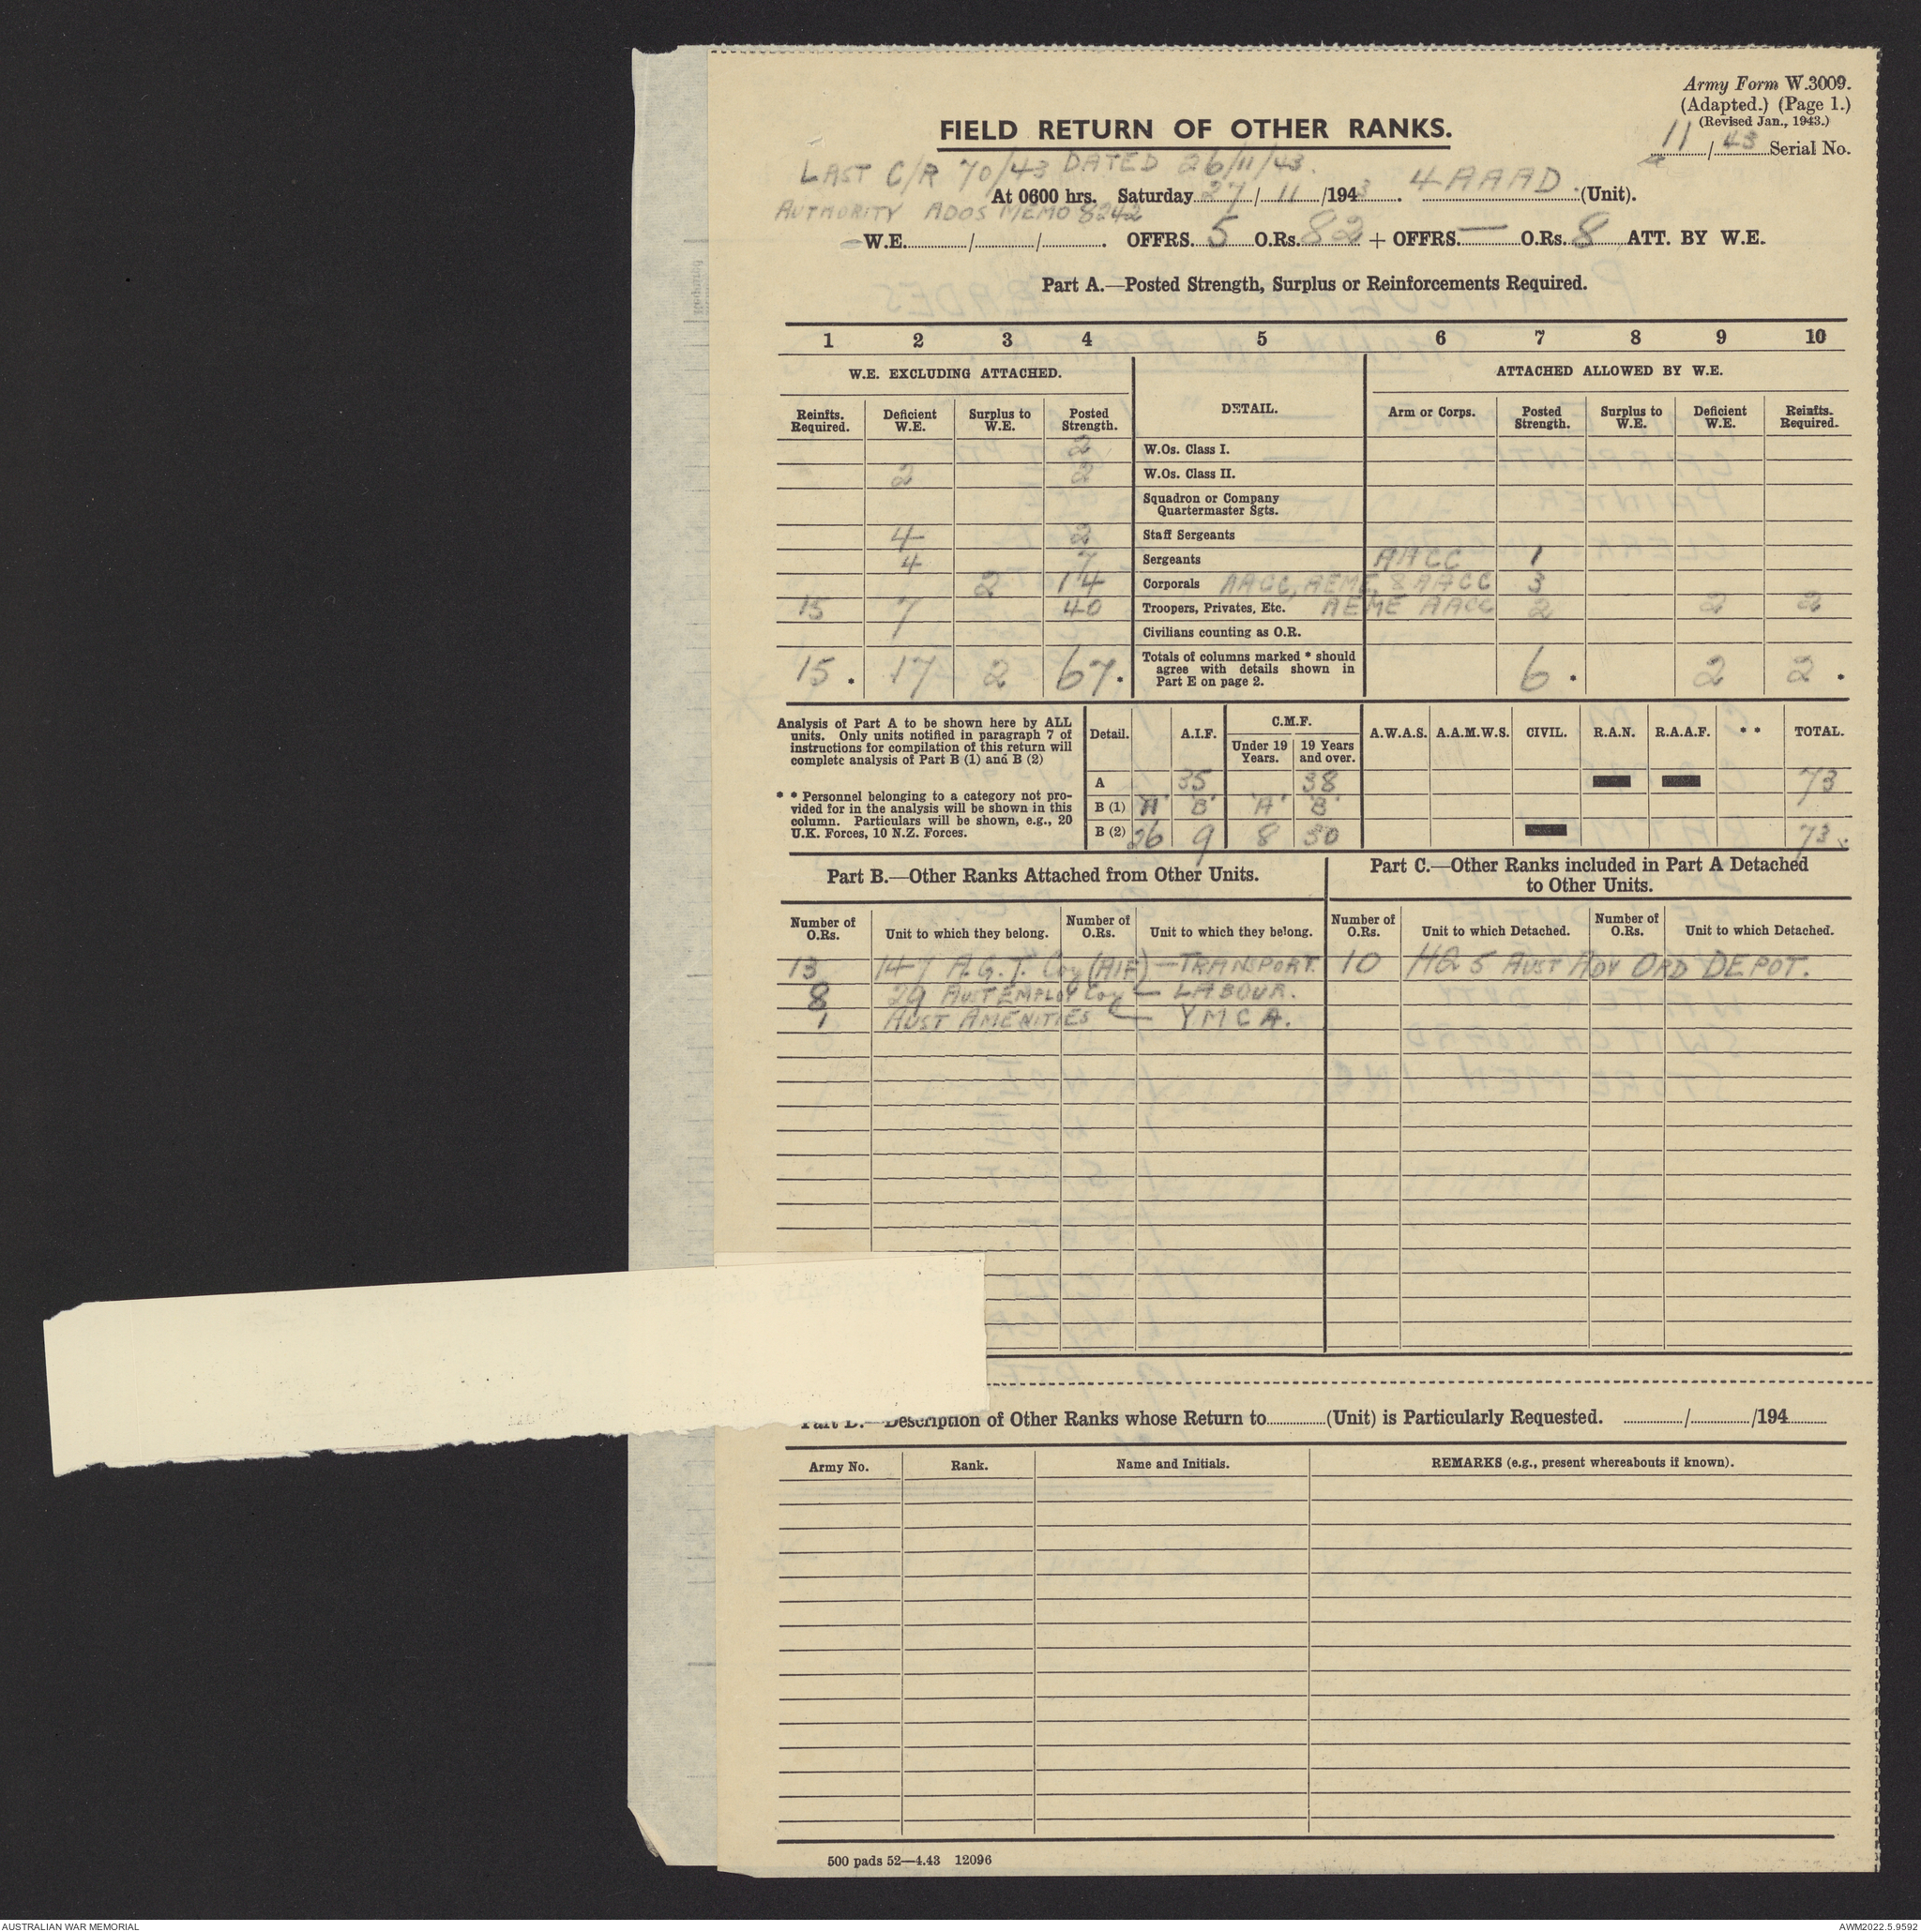 Army Form W.3009.
(Adapted.) (Page 1.)
(Revised Jan., 1943.)
11 / 43 Serial No.
FIELD RETURN OF OTHER RANKS.
LAST C/R 70/43 DATED 26/11/43.
At 0600 hrs. Saturday 27 / 11 /1943. 4 AAAD (Unit).
AUTHORITY ADOS MEMO 8242
W.E. / / . OFFRS. 5 O.Rs. 82 + OFFRS. — O.Rs. 8 ATT. BY W.E.
Part A.—Posted Strength, Surplus or Reinforcements Required.
1 2 3 4 5 6 7 8 9 10
W.E. EXCLUDING ATTACHED. DETAIL. ATTACHED ALLOWED BY W.E.
Reinfts. Required. Deficient W.E. Surplus to W.E. Posted Strength. Arm or Corps. Posted Strength. Surplus to W.E. Deficient W.E. Reinfts. Required.
2 W.Os. Class I.
2 2 W.Os. Class II.
Squadron or Company
Quartermaster Sgts.
4 2 Staff Sergeants
4 7 Sergeants AACC 1
2 14 Corporals AACC, AEME, & AACC 3
15 7 40 Troopers, Privates, Etc. AEME AACC 2 2 2
Civilians counting as O.R.
15 . 17 2 67 . Totals of columns marked * should
agree with details shown in
Part E on page 2. 6 . 2 2 .
Analysis of Part A to be shown here by ALL
units. Only units notified in paragraph 7 of
instructions for compilation of this return will
complete analysis of Part B (1) and B (2)
* * Personnel belonging to a category not pro-
vided for in the analysis will be shown in this
column. Particulars will be shown, e.g., 20
U.K. Forces, 10 N.Z. Forces.
Detail. A.I.F. C.M.F. A.W.A.S. A.A.M.W.S. CIVIL. R.A.N. R.A.A.F. * * TOTAL.
Under 19 Years. 19 Years and over.
A 35 38 73
B (1) 'A' 'B' 'A' 'B'
B (2) 26 9 8 30 73
Part B.—Other Ranks Attached from Other Units.
Part C.—Other Ranks included in Part A Detached
to Other Units.
Number of O.Rs. Unit to which they belong. Number of O.Rs. Unit to which they belong. Number of O.Rs. Unit to which Detached. Number of O.Rs. Unit to which Detached.
13 147 A.G.T. Coy (AIF) — TRANSPORT. 10 HQ 5 AUST ADV ORD DEPOT.
8 29 AUST EMPLOY Coy — LABOUR.
1 AUST AMENITIES — YMCA.
Part D.—Description of Other Ranks whose Return to (Unit) is Particularly Requested. / /194
Army No. Rank. Name and Initials. REMARKS (e.g., present whereabouts if known).
500 pads 52—4.43 12096
AUSTRALIAN WAR MEMORIAL
AWM2022.5.9592